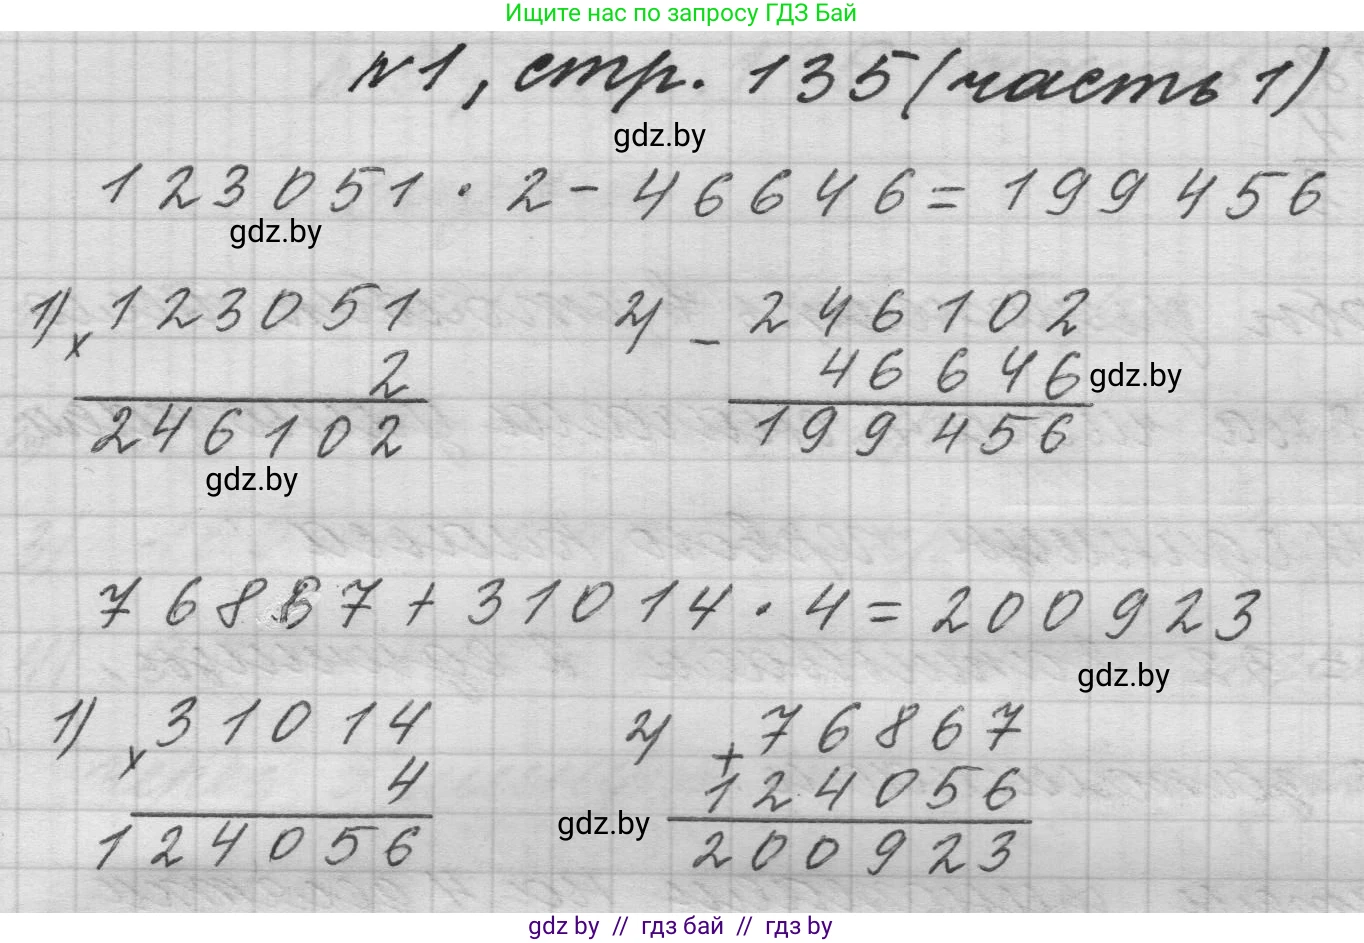 Ищите нас по запросу ГДЗ Бай
№1, стр. 135 (часть 1)
gdz.by
123051 · 2 - 46646 = 199456
gdz.by
1) × 123051
2
246102
gdz.by
2) - 246102
46646
gdz.by
199456
76867 + 31014 · 4 = 200923
gdz.by
1) × 31014
4
124056
2) + 76867
124056
gdz.by
200923
gdz by // гдз бай // гдз by